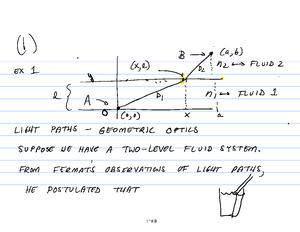 (1)
B → (a,b)
(x,l)
EX 1
y
D₂
n₂ ↔ FLUID 2
l
A
D₁
n₁ ↔ FLUID 1
O
(0,0)
x
a
LIGHT PATHS - GEOMETRIC OPTICS
SUPPOSE WE HAVE A TWO-LEVEL FLUID SYSTEM.
FROM FERMAT'S OBSERVATIONS OF LIGHT PATHS,
HE POSTULATED THAT